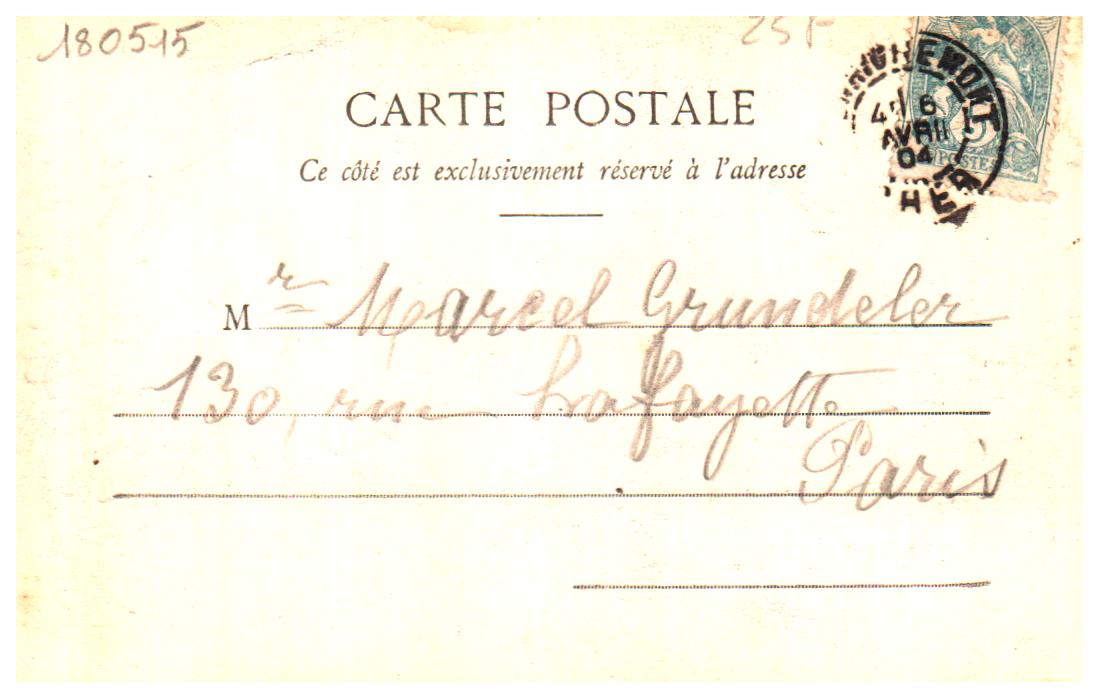 180515
25F
CARTE POSTALE
Ce côté est exclusivement réservé à l'adresse
6
AVRIL
04
5
POSTES
Mr Marcel Grundeler
130, rue Lafayette
Paris